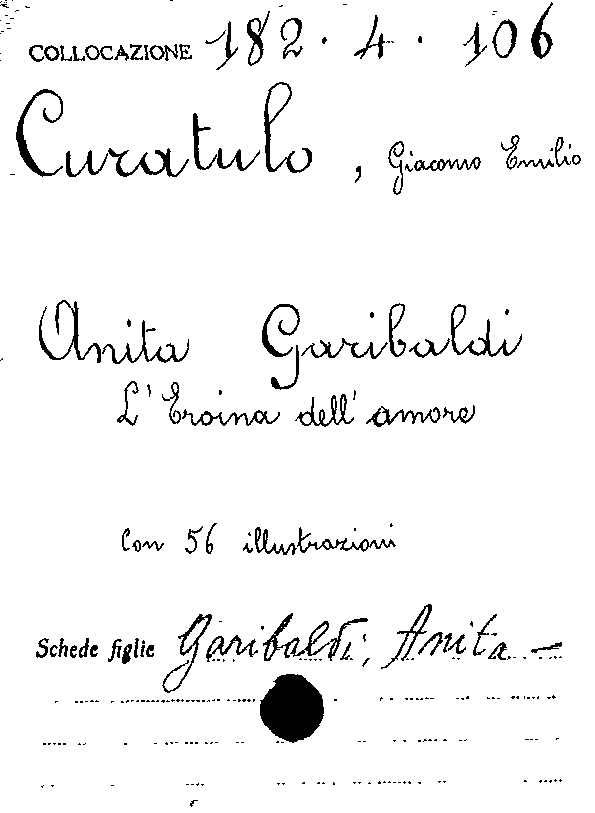 COLLOCAZIONE 182 · 4 · 106
Curatulo, Giacomo Emilio
Anita Garibaldi
L'Eroina dell'amore
Con 56 illustrazioni
Schede figlie Garibaldi, Anita —